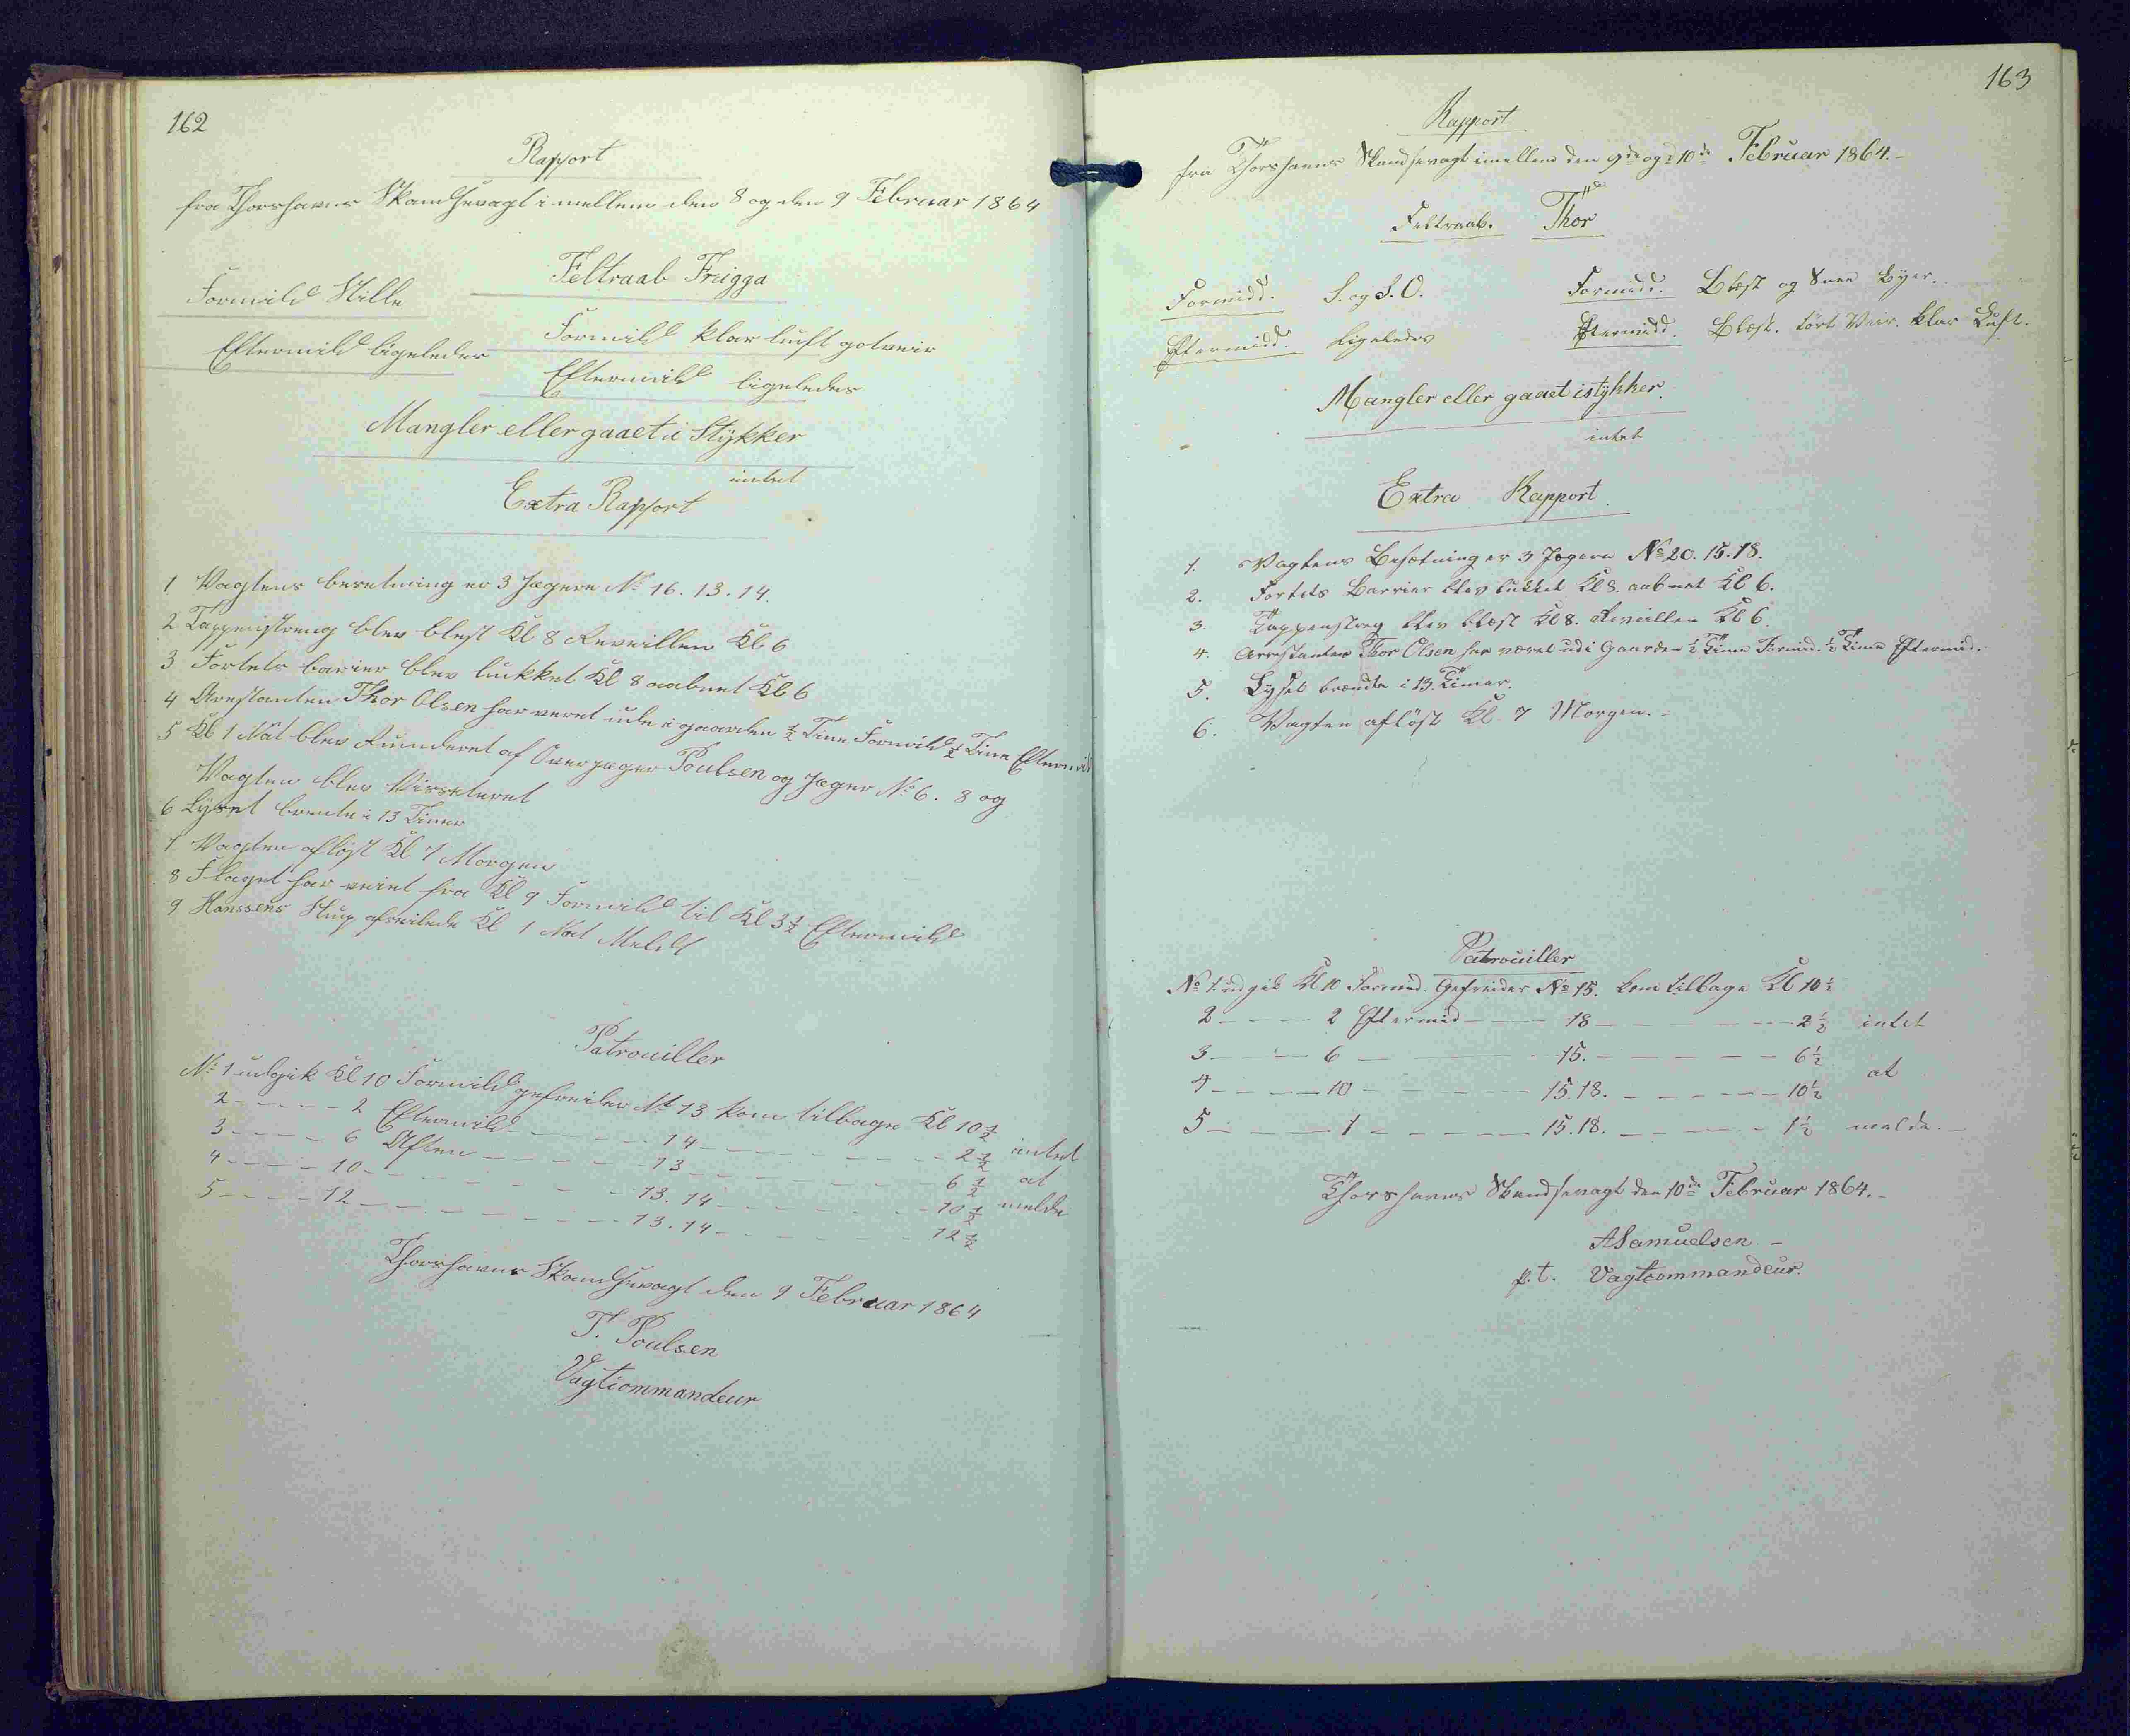 162
Rapport
fra Thorshavns Skandsevagt imellem den 8 og den 9 Februar 1864
Feltraab Frigga
Formidd Stille
Formidd klar luft gotveir
Eftermidd ligeledes
Eftermidd ligeledes
Mangler eller gaaet i Stykker
intet
Extra Rapport
1 Vagtens besetning er 3 Jægere No 16. 13. 14.
2 Tappenstreng blev blest Kl 8 Reveillen Kl 6
3 Fortets barier blev lukket Kl 8 aabnet Kl 6
4 Arestanten Thor Olsen har veret ude i gaarden ½ Time Formidd ½ Time Eftermid
5 Kl 1 Nat blev Runderet af Overjæger Poulsen og Jæger No 6. 8 og
Vagten blev Vissiteret
6 Lyset brente i 13 Timer
7 Vagten afløst Kl 7 Morgen
8 Flaget har veiet fra Kl 9 Formidd til Kl 3½ Eftermidd
9 Hanssens Slup afseilede Kl 1 Nat
Patrouiller
No 1 udgik Kl 10 Formidd gefreider No 13 kom tilbage Kl 10½
2 - - - - - 2 Eftermidd - - - - - 14 - - - - - - - 2½ intet
3 - - - - - 6 Aften - - - - - - 13 - - - - - - - 6½ at
4 - - - - 10 - - - - - - - 13. 14 - - - - - - - 10½ melde
5 - - - - 12 - - - - - - - 13. 14 - - - - - - 12½
Thorshavns Skandsevagt den 9 Februar 1864
T. Poulsen
Vagtcommandeur
163
Rapport
fra Thorshavns Skandsevagt imellem den 9de og 10de Februar 1864.-
Feltraab. Thor
Formidd. S. og S.O. Formidd. Blæst og Snee Byer.
Eftermidd. ligeledes Eftermidd. Blæst. tört Veir. klar Luft.
Mangler eller gaaet istykker.
intet
Extra Rapport.
1. Vagtens Besætning er 3 Jægere No 20. 15. 18.
2. Fortets Barrier blev lukket Kl 8. aabnet Kl 6.
3. Tappenstreg blev blæst Kl 8. Reveillen Kl 6.
4. Arrestanten Thor Olsen har været ud i Gaarden ½ Time Formid. ½ Time Eftermid.
5. Lyset brændte i 13. Timer.
6. Vagten aflöst Kl. 7 Morgen. -
Patrouiller
No 1. udgik Kl 10 Formid. Gefreider No 15. kom tilbage Kl 10½
2 - - - - 2 Eftermid - - - 18 - - - - - - - 2½ intet
3 - - - - 6 - - - - - 15. - - - - - - 6½
4 - - - - 10 - - - - - 15. 18. - - - - - 10½ at
5 - - - - 1 - - - - - 15. 18. - - - - - 1½ melde. -
Thorshavns Skandsevagt den 10de Februar 1864. -
ASamuelsen. -
p.t. Vagtcommandeur.